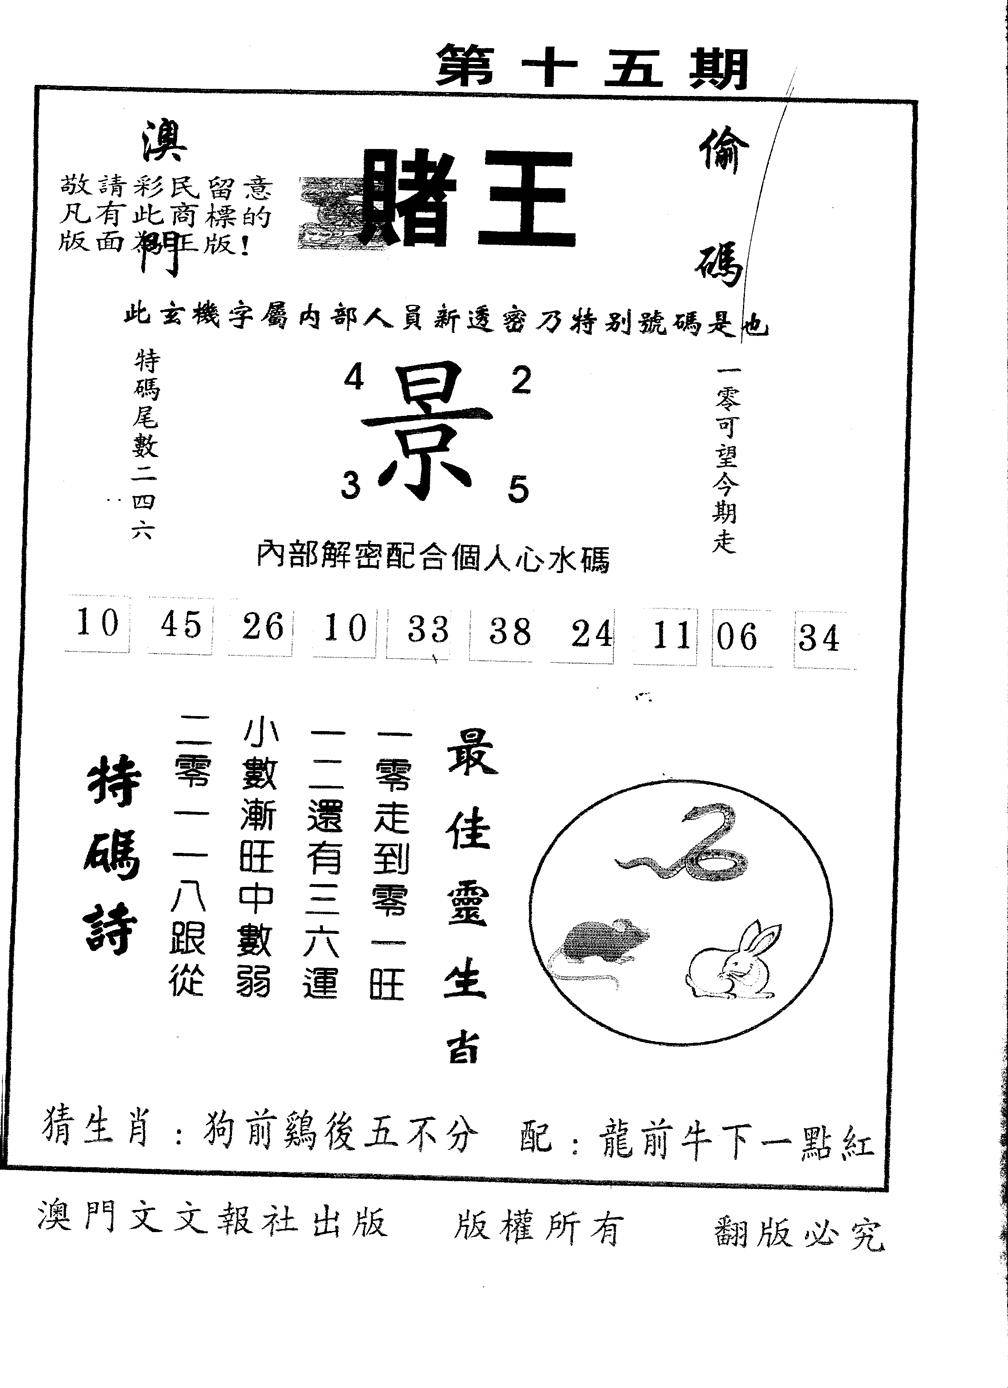 第十五期
澳門
賭王
偷碼
敬請彩民留意
凡有此商標的
版面為正版!
此玄機字屬内部人員新透密乃特别號碼是也
特碼尾數二四六
4
2
景
3
5
一零可望今期走
內部解密配合個人心水碼
10 45 26 10 33 38 24 11 06 34
最佳靈生肖
一零走到零一旺
一二還有三六運
小數漸旺中數弱
二零一一八跟從
特碼詩
猜生肖：狗前鷄後五不分 配：龍前牛下一點紅
澳門文文報社出版 版權所有 翻版必究